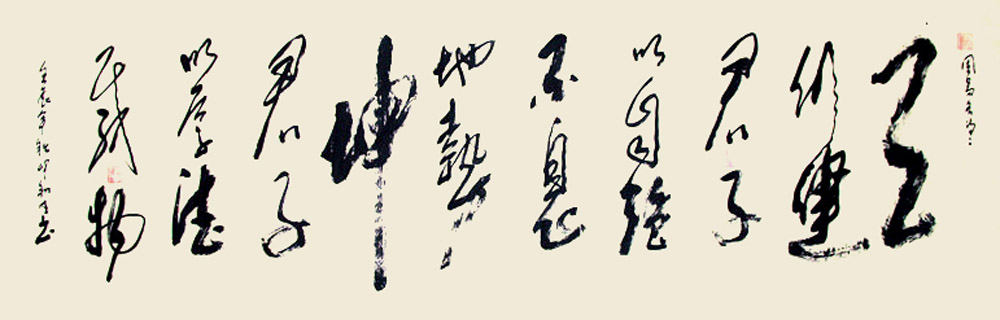 周易
天
行健
君子
以自強
不息
地勢
坤
君子
以厚德
載物
壬辰年秋